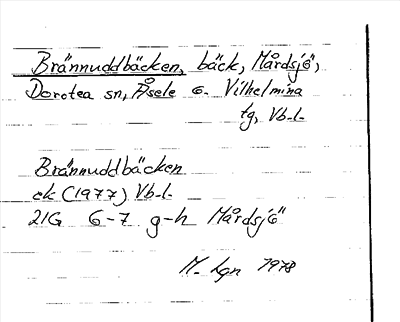 Brännuddbäcken, bäck, Mårdsjö,
Dorotea sn, Åsele o. Vilhelmina
tg, Vb-l.
Brännuddbäcken
ek (1977) Vb-l.
21G 6-7 g-h Mårdsjö
M. Lgn 1978